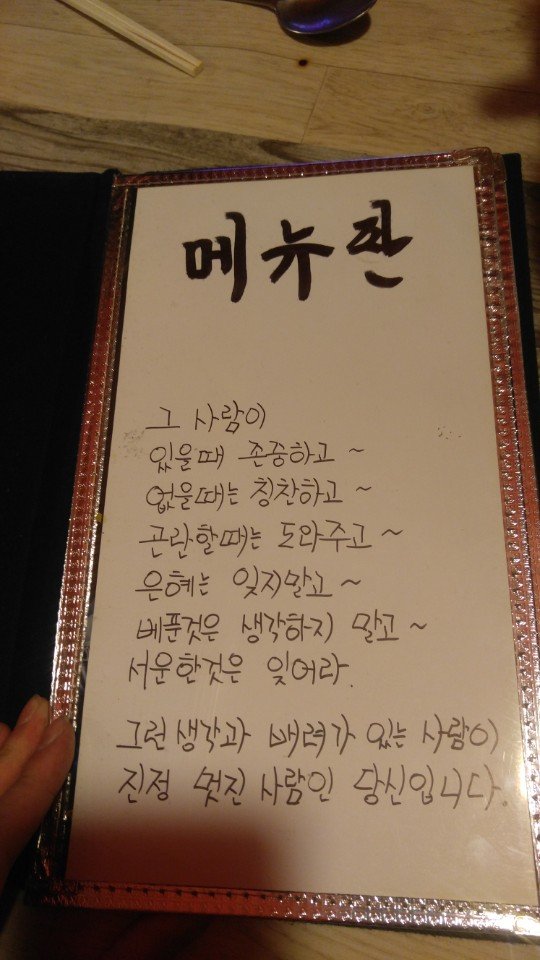 메뉴판
그 사람이
있을때 존중하고 ~
없을때는 칭찬하고 ~
곤란할때는 도와주고 ~
은혜는 잊지말고 ~
베푼것은 생각하지 말고 ~
서운한것은 잊어라.
그런 생각과 배려가 있는 사람이
진정 멋진 사람인 당신입니다.